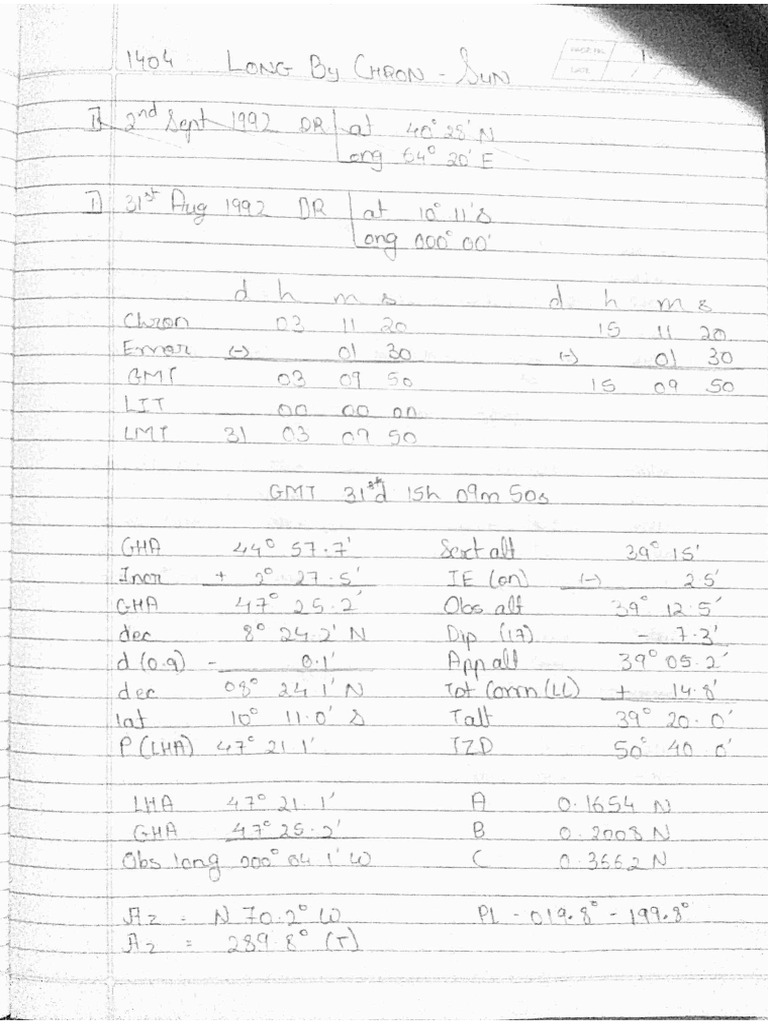 1404 LONG BY CHRON - SUN
PAGE NO. 1
DATE / /
I) 2nd Sept 1992 DR Lat 40° 28' N
Long 64° 20' E
I) 31st Aug 1992 DR Lat 10° 11' S
Long 000° 00'
d h m s d h m s
Chron 03 11 20 15 11 20
Error (-) 01 30 (-) 01 30
GMT 03 09 50 15 09 50
LIT 00 00 00
LMT 31 03 09 50
GMT 31st d 15h 09m 50s
GHA 44° 57.7' Sext alt 39° 15'
Incr + 2° 27.5' IE (on) (-) 2.5'
GHA 47° 25.2' Obs alt 39° 12.5'
dec 8° 24.2' N Dip (17) - 7.3'
d (0.9) - 0.1' App alt 39° 05.2'
dec 08° 24.1' N Tot Corrn (LL) + 14.8'
lat 10° 11.0' S T alt 39° 20.0'
P (LHA) 47° 21.1' TZD 50° 40.0'
LHA 47° 21.1' A 0.1654 N
GHA 47° 25.2' B 0.2008 N
Obs long 000° 04.1' W C 0.3662 N
Az = N 70.2° W PL - 019.8° - 199.8°
Az = 289.8° (T)